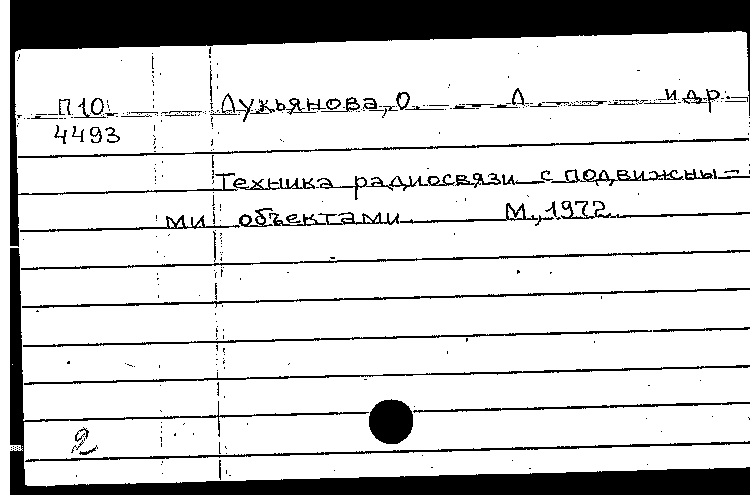 П10 Лукьянова, О. Л. и др.
4493
Техника радиосвязи с подвижны-
ми объектами. М., 1972.
2